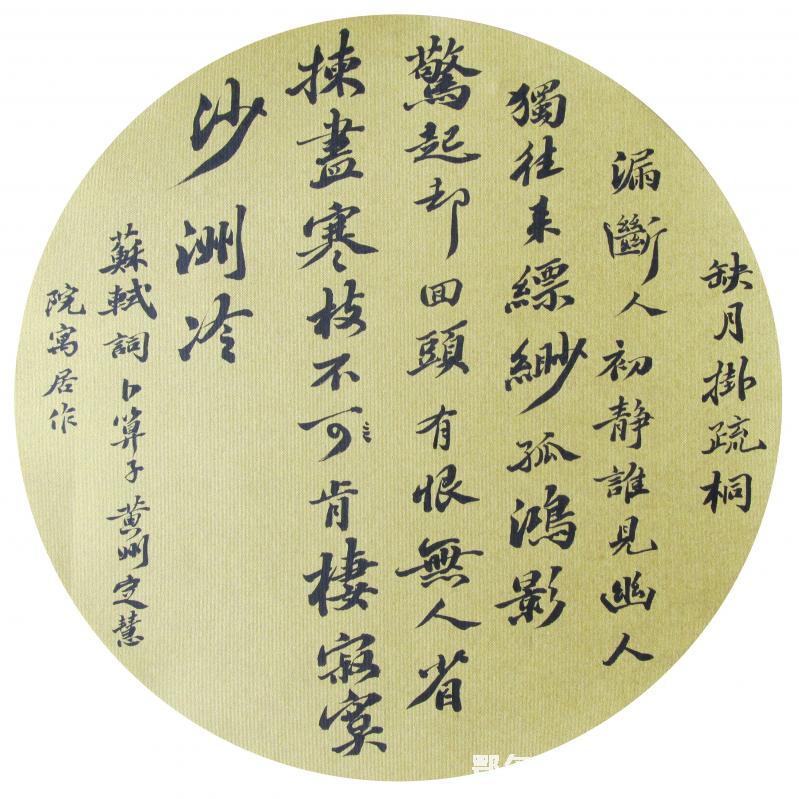 缺月掛疏桐
漏斷人初靜誰見幽人
獨往來縹緲孤鴻影
驚起却回頭有恨無人省
揀盡寒枝不可肯棲寂寞
沙洲冷
蘇軾詞卜算子黃州定慧
院寓居作
鄂